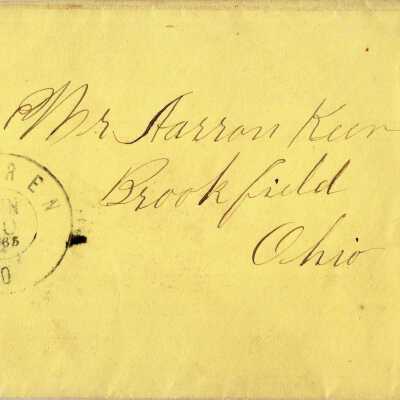 Mr Aarron Keer
Brookfield
Ohio
REN
N
65
O